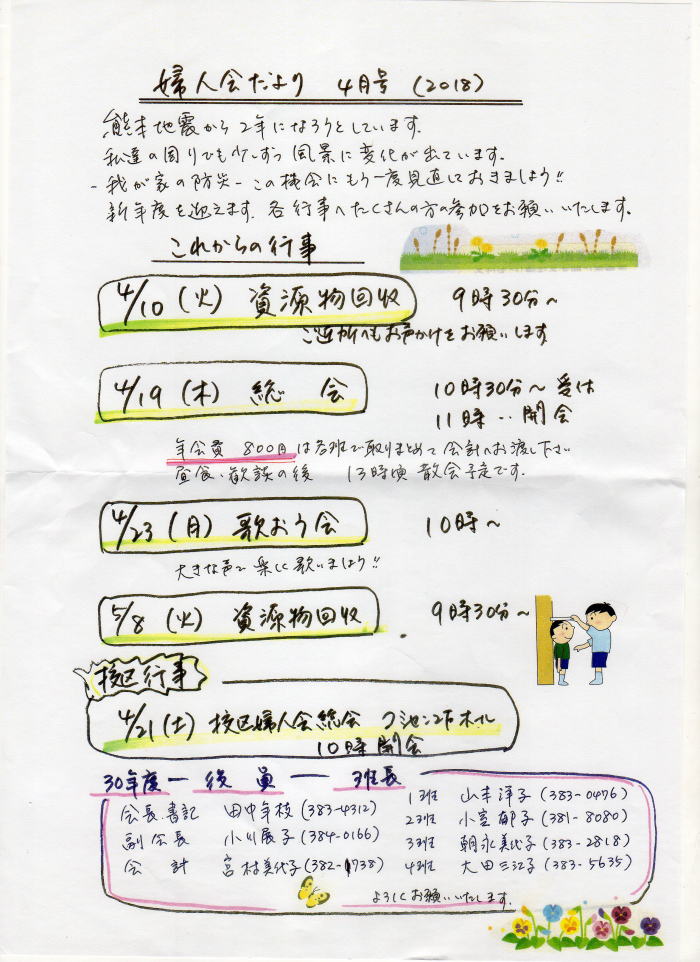 婦人会だより 4月号 (2018)
熊本地震から2年になろうとしています。
私達の周りでも少しずつ風景に変化が出ています。
- 我が家の防災 - この機会にもう一度見直しておきましょう!!
新年度を迎えます。各行事へたくさんの方の参加をお願いいたします。
これからの行事
4/10 (火) 資源物回収 9時30分~
ご近所へもお声かけをお願いします
4/19 (木) 総会 10時30分~受付
11時‥開会
年会費 800円は各班で取りまとめて会計へお渡し下さい
昼食、歓談の後 13時頃 散会予定です。
4/23 (月) 歌おう会 10時~
大きな声で楽しく歌いましょう!!
5/8 (火) 資源物回収 9時30分~
校区行事
4/21 (土) 校区婦人会総会 ホール
10時開会
30年度 ー 役員 ー 班長
会長.書記 田中年枝 (383-4312)
副会長 小川展子 (384-0166)
会計 宮村美代子 (382-1738)
1班 山本洋子 (383-0476)
2班 小宮郁子 (381-8080)
3班 朝永美代子 (383-2818)
4班 大田三江子 (383-5635)
よろしくお願いいたします。